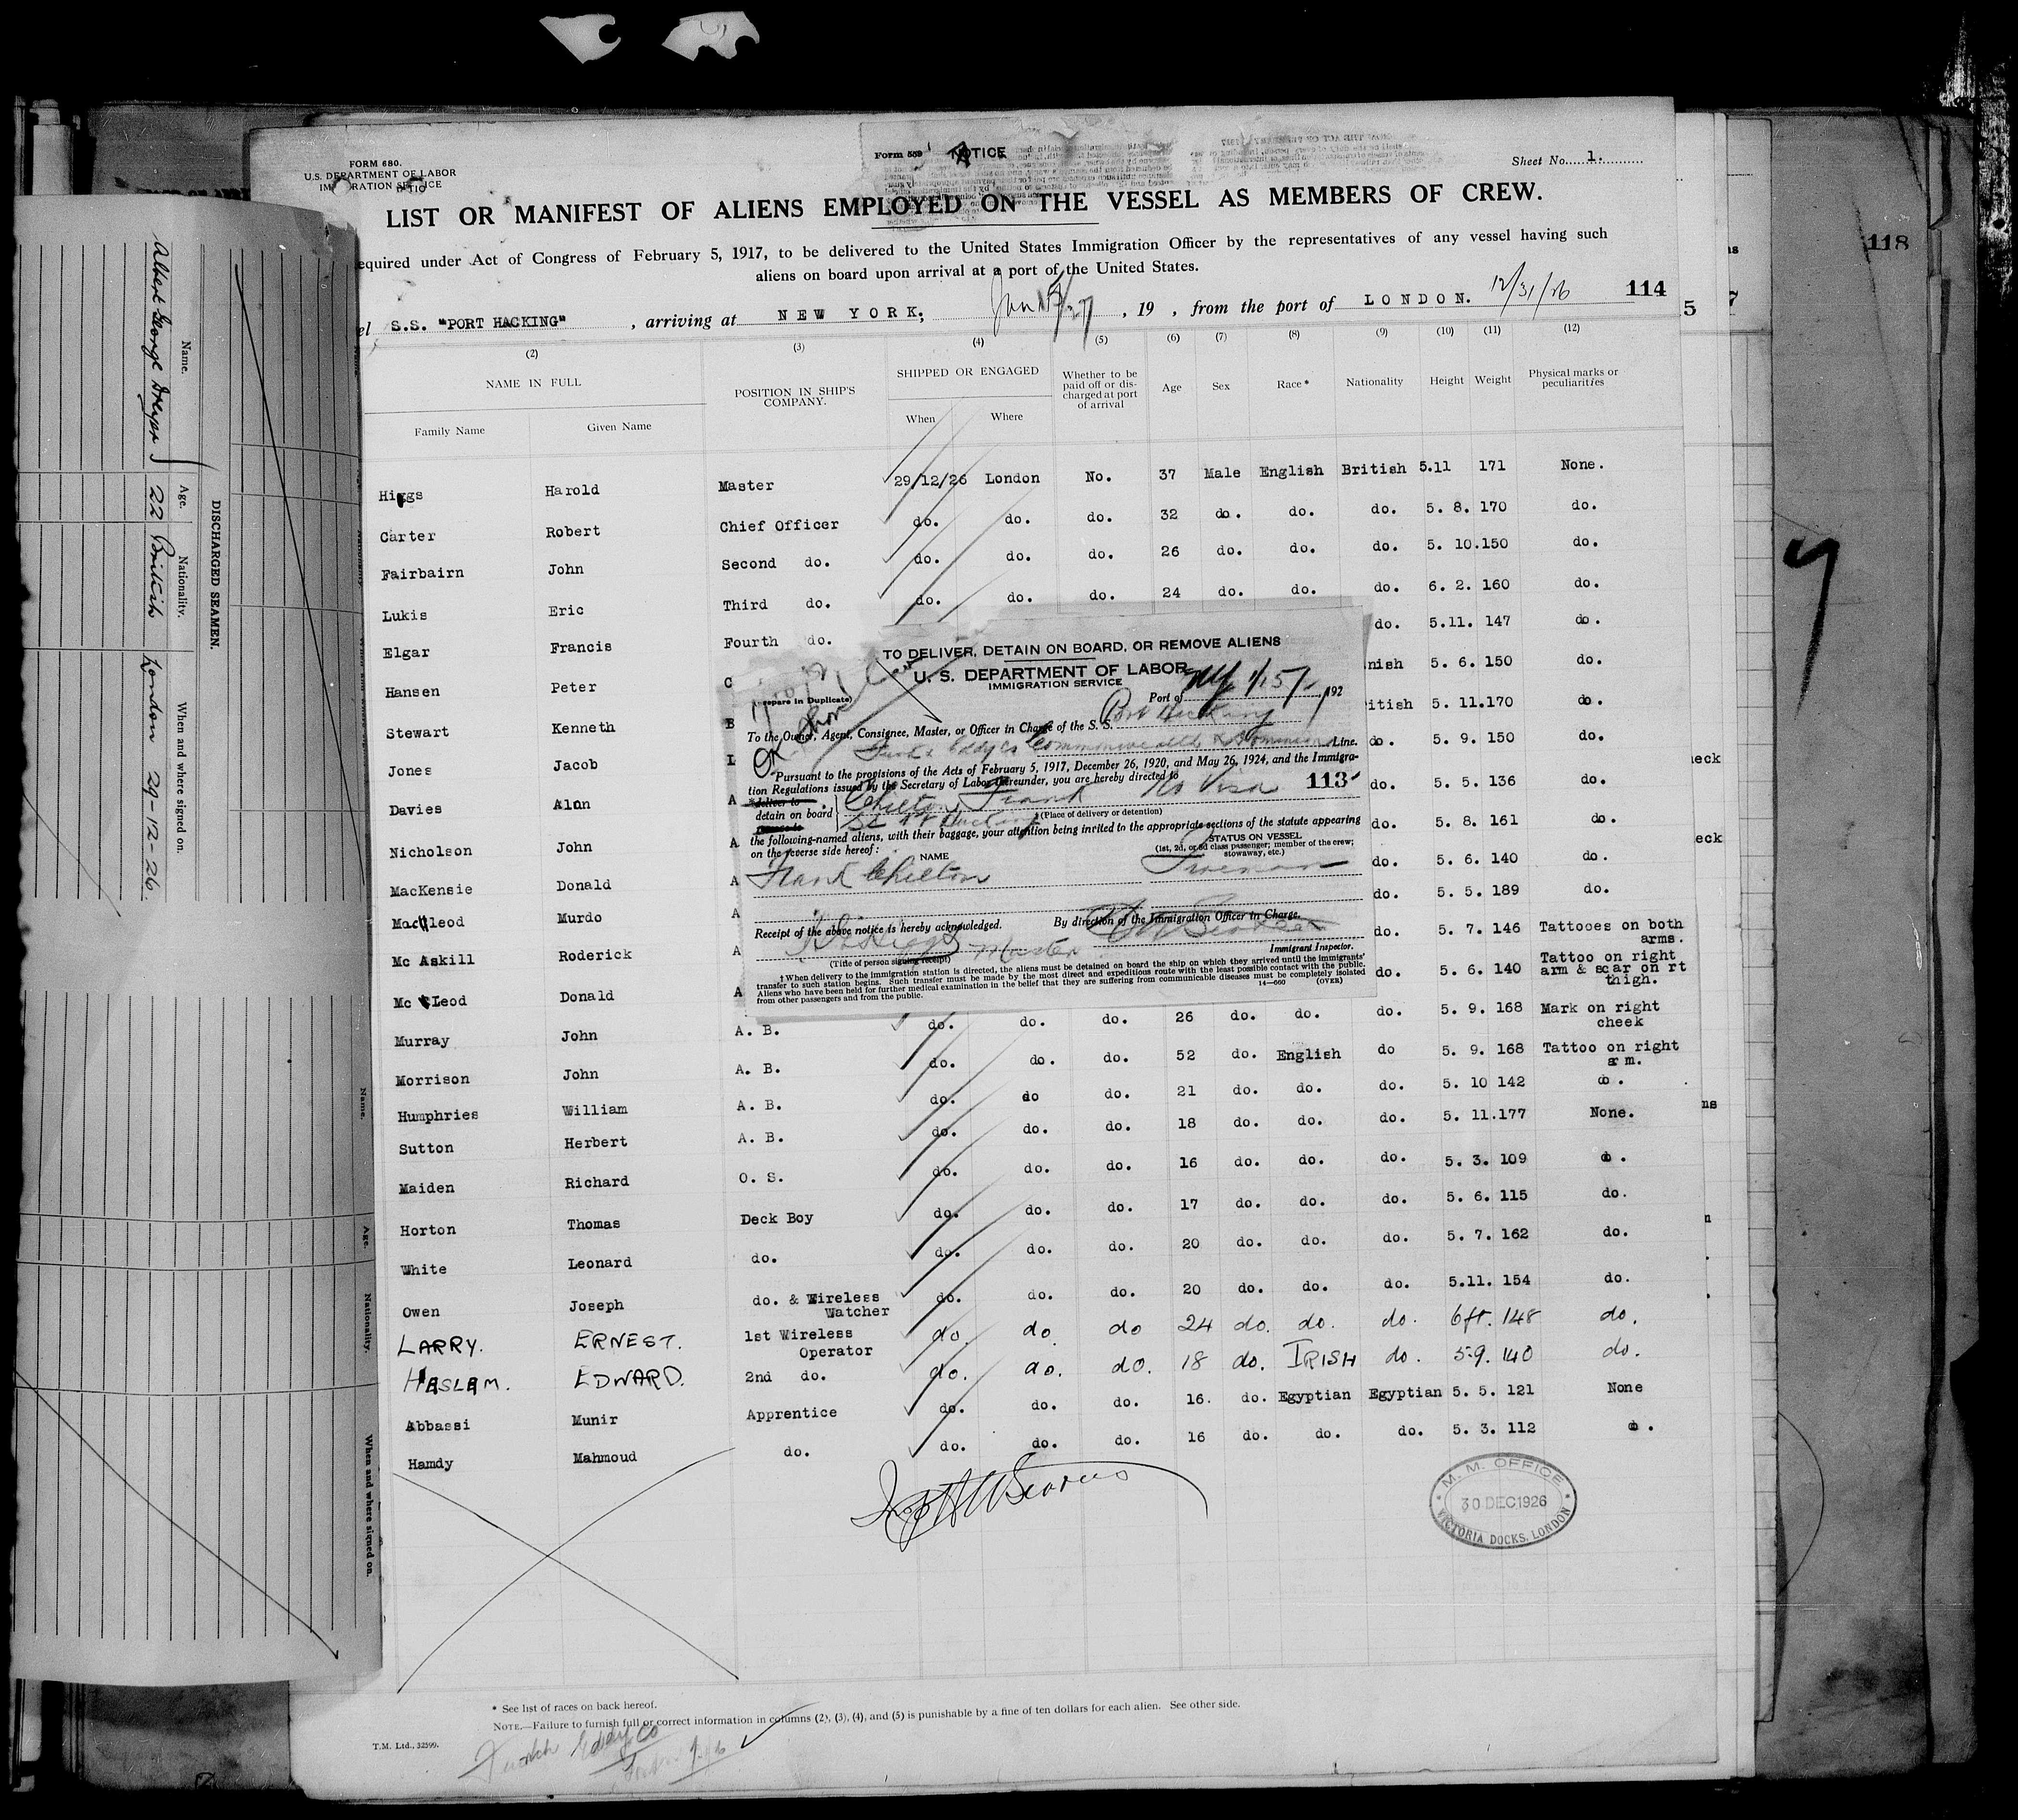 FORM 680.
U.S. DEPARTMENT OF LABOR
Form 559 NOTICE
Sheet No. 1.
LIST OR MANIFEST OF ALIENS EMPLOYED ON THE VESSEL AS MEMBERS OF CREW.
equired under Act of Congress of February 5, 1917, to be delivered to the United States Immigration Officer by the representatives of any vessel having such
aliens on board upon arrival at a port of the United States.
el S.S. "PORT HACKING" , arriving at NEW YORK; , 19 , from the port of LONDON. 12/31/26 114
5 7
118
(2) (3) (4) (5) (6) (7) (8) (9) (10) (11) (12)
NAME IN FULL POSITION IN SHIP'S COMPANY. SHIPPED OR ENGAGED Whether to be paid off or discharged at port of arrival Age Sex Race * Nationality Height Weight Physical marks or peculiarities
Family Name Given Name When Where
Higgs Harold Master 29/12/26 London No. 37 Male English British 5.11 171 None.
Carter Robert Chief Officer do. do. do. 32 do. do. do. 5. 8. 170 do.
Fairbairn John Second do. do. do. do. 26 do. do. do. 5. 10. 150 do.
Lukis Eric Third do. do. do. do. 24 do. do. do. 6. 2. 160 do.
Elgar Francis Fourth do. do. 5.11. 147 do.
Hansen Peter C nish 5. 6. 150 do.
Stewart Kenneth B itish 5. 11. 170 do.
Jones Jacob L do. 5. 9. 150 do.
Davies Alan A do. 5. 5. 136 do.
Nicholson John A do. 5. 8. 161 do.
MacKensie Donald A do. 5. 6. 140 do.
MacLeod Murdo A do. 5. 5. 189 do.
Mc Askill Roderick A do. 5. 7. 146 Tattooes on both arms.
Mc Leod Donald A do. 5. 6. 140 Tattoo on right arm & scar on rt thigh.
Murray John A. B. do. do. do. 26 do. do. do. 5. 9. 168 Mark on right cheek
Morrison John A. B. do. do. do. 52 do. English do 5. 9. 168 Tattoo on right arm.
Humphries William A. B. do. do do. 21 do. do. do. 5. 10 142 do.
Sutton Herbert A. B. do. do. do. 18 do. do. do. 5. 11. 177 None.
Maiden Richard O. S. do. do. do. 16 do. do. do. 5. 3. 109 do.
Horton Thomas Deck Boy do. do. do. 17 do. do. do. 5. 6. 115 do.
White Leonard do. do. do. do. 20 do. do. do. 5. 7. 162 do.
Owen Joseph do. & Wireless Watcher do. do. do. 20 do. do. do. 5.11. 154 do.
LARRY. ERNEST. 1st Wireless Operator do. do do 24 do. do. do. 6ft. 148 do.
HASLAM. EDWARD. 2nd do. do. do. do. 18 do. IRISH do. 5.9. 140 do.
Abbassi Munir Apprentice do. do. do. 16. do. Egyptian Egyptian 5. 5. 121 None
Hamdy Mahmoud do. do. do. do. 16 do. do. do. 5. 3. 112 do.
TO DELIVER, DETAIN ON BOARD, OR REMOVE ALIENS
U. S. DEPARTMENT OF LABOR
IMMIGRATION SERVICE
(Prepare in Duplicate)
Port of NY 1/15/ , 192
To the Owner, Agent, Consignee, Master, or Officer in Charge of the S. S. Port Hacking
Commonwealth & Dominion Line.
Pursuant to the provisions of the Acts of February 5, 1917, December 26, 1920, and May 26, 1924, and the Immigra-
tion Regulations issued by the Secretary of Labor thereunder, you are hereby directed to
*deliver to Chilton, Frank No Visa 113
detain on board
remove to
†(Place of delivery or detention)
the following-named aliens, with their baggage, your attention being invited to the appropriate sections of the statute appearing
on the reverse side hereof:
NAME STATUS ON VESSEL
(1st, 2d, or 3d class passenger; member of the crew; stowaway, etc.)
Frank Chilton Fireman
Receipt of the above notice is hereby acknowledged. By direction of the Immigration Officer in Charge.
Master
(Title of person signing receipt) Immigrant Inspector.
† When delivery to the immigration station is directed, the aliens must be detained on board the ship on which they arrived until the immigrants'
transfer to such station begins. Such transfer must be made by the most direct and expeditious route with the least possible contact with the public.
Aliens who have been held for further medical examination in the belief that they are suffering from communicable diseases must be completely isolated
from other passengers and from the public. 14—660 (OVER)
M. M. OFFICE
30 DEC 1926
VICTORIA DOCKS, LONDON
* See list of races on back hereof.
NOTE.—Failure to furnish full or correct information in columns (2), (3), (4), and (5) is punishable by a fine of ten dollars for each alien. See other side.
T.M. Ltd., 32599.
DISCHARGED SEAMEN.
Name. Age. Nationality. When and where signed on.
Albert George Dreyer 22 British London 29-12-26.
Name. Age. Nationality. When and where signed on.